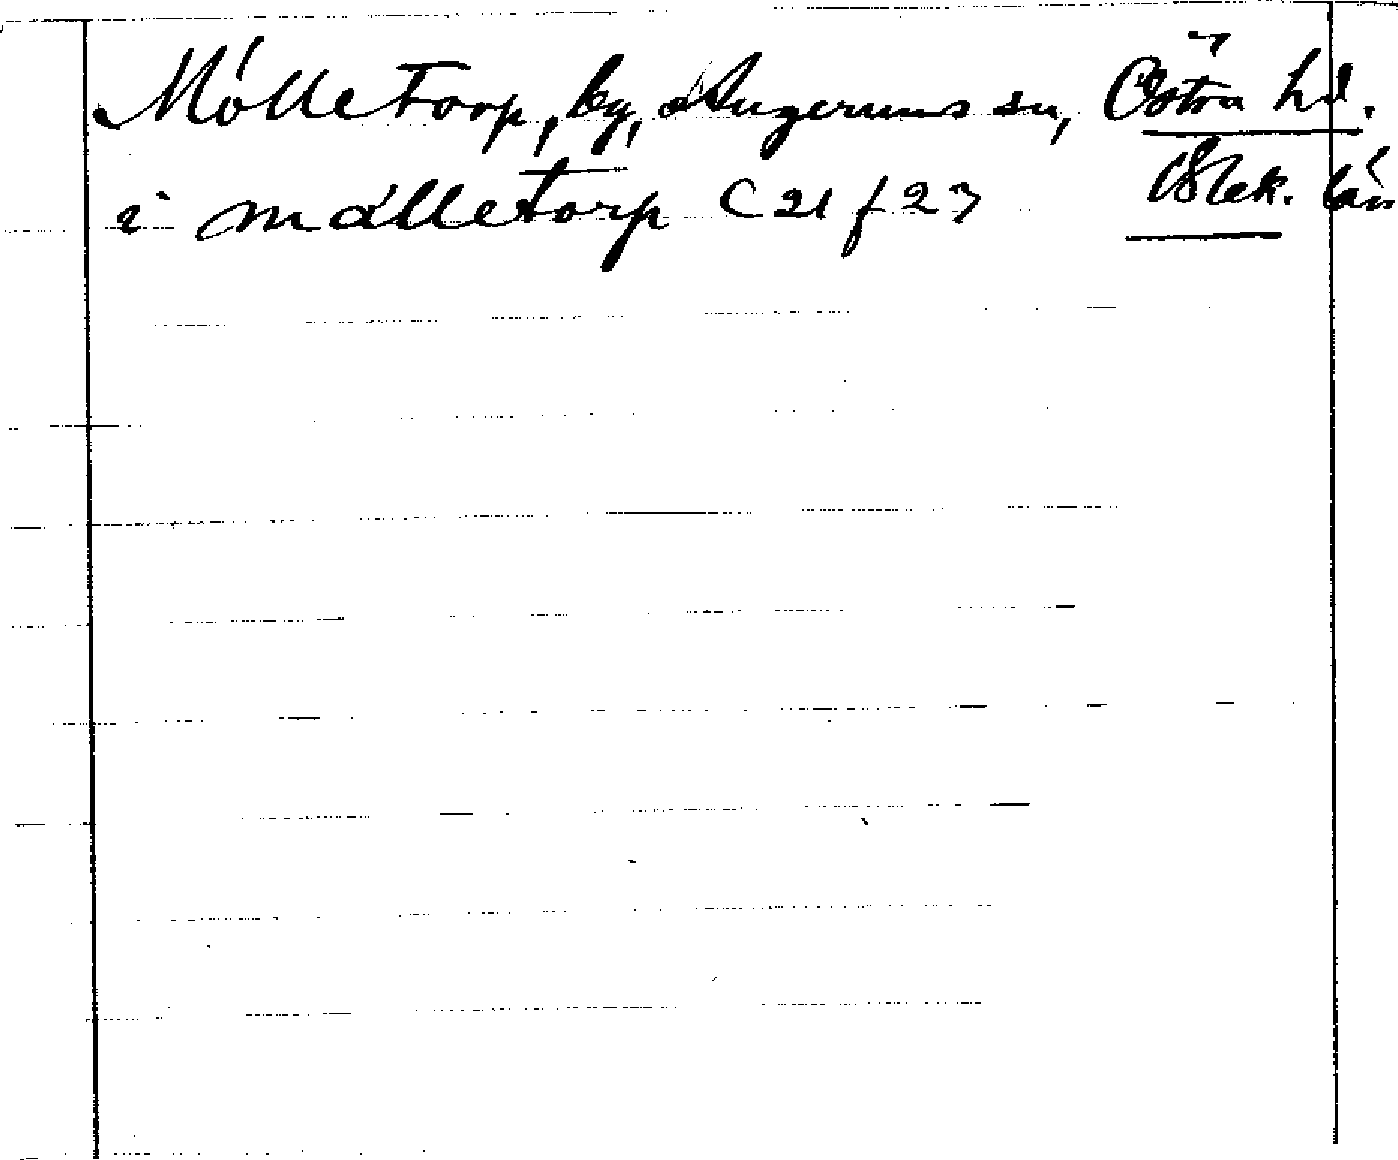 Mölletorp, by, Augerums sn, Östra hd.
i mölletorp C 21 f 23 Blek. län